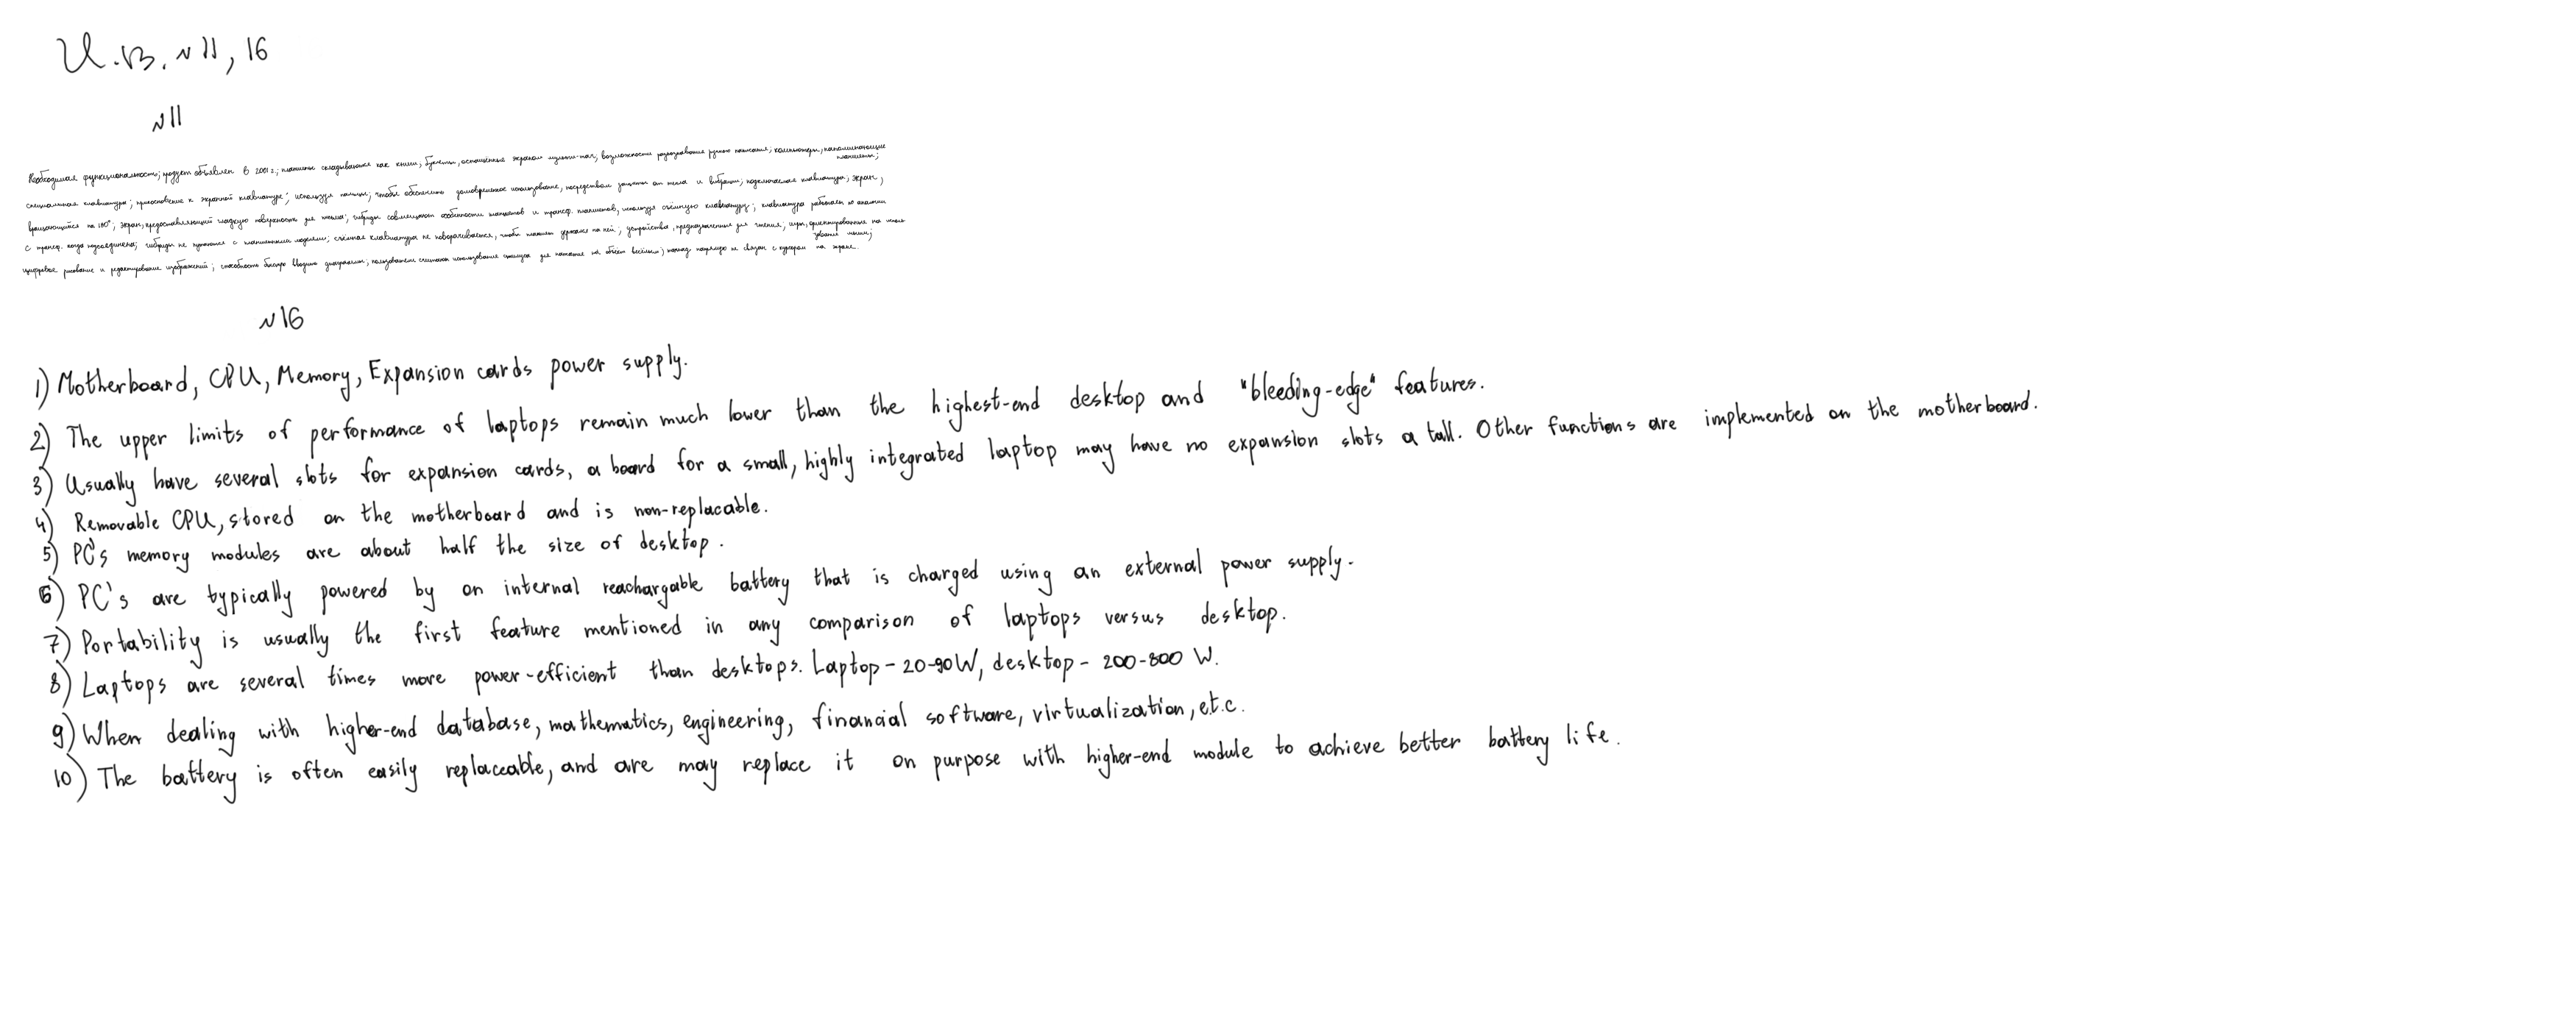 И.В. №11, 16
№11
Необходимая функциональность; продукт объявлен в 2001 г.; планшеты складывающиеся как книги; буклеты, оснащённые экраном мульти-тач, возможности распознавания ручного написания; компьютеры, напоминающие
планшеты;
специальная клавиатура; прикосновение к экранной клавиатуре; используя пальцы; чтобы обеспечить долговременное использование, посредством защиты от тепла и вибрации; подключаемая клавиатура; экран,
вращающийся на 180°; экран, предоставляющий гладкую поверхность для письма; гибриды совмещают особенности планшетов и трансф. планшетов, используя съёмную клавиатуру; клавиатура работает по аналогии
с трансф. когда подсоединена; гибриды не путать с планшетными моделями; съёмная клавиатура не поворачивается, чтобы планшет держался на ней; устройства, предназначенные для чтения; игры, ориентированные на исполь
зование мыши;
цифровое рисование и редактирование изображений; способность быстро вводить диаграммы; пользователи считают использование стилуса для нажатия на объект весёлым; тачпад напрямую не связан с курсором на экране.
№16
1) Motherboard, CPU, Memory, Expansion cards power supply.
2) The upper limits of performance of laptops remain much lower than the highest-end desktop and "bleeding-edge" features.
3) Usually have several slots for expansion cards, a board for a small, highly integrated laptop may have no expansion slots a tall. Other functions are implemented on the motherboard.
4) Removable CPU, stored on the motherboard and is non-replacable.
5) PC's memory modules are about half the size of desktop.
6) PC's are typically powered by on internal reachargable battery that is charged using an external power supply.
7) Portability is usually the first feature mentioned in any comparison of laptops versus desktop.
8) Laptops are several times more power-efficient than desktops. Laptop - 20-90W, desktop - 200-800 W.
9) When dealing with higher-end database, mathematics, engineering, financial software, virtualization, e.t.c.
10) The battery is often easily replaceable, and are may replace it on purpose with higher-end module to achieve better battery life.